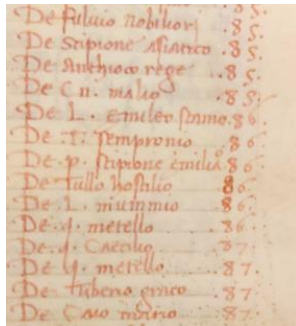 De Fulvio nobiliori .85.
De Scipione Asiatico .85.
De Anthioco rege .85.
De Cn. malio .85.
De L. Emileo .86.
De .T. Sempronio .86.
De .p. Scipione emilia 86.
De Tullo hostilio 86.
De L. mummio .86.
De .q. metello .86.
De .q. Caecilio .87.
De .q. metello .87.
De Tiberio graco .87.
De Caio mario .87.